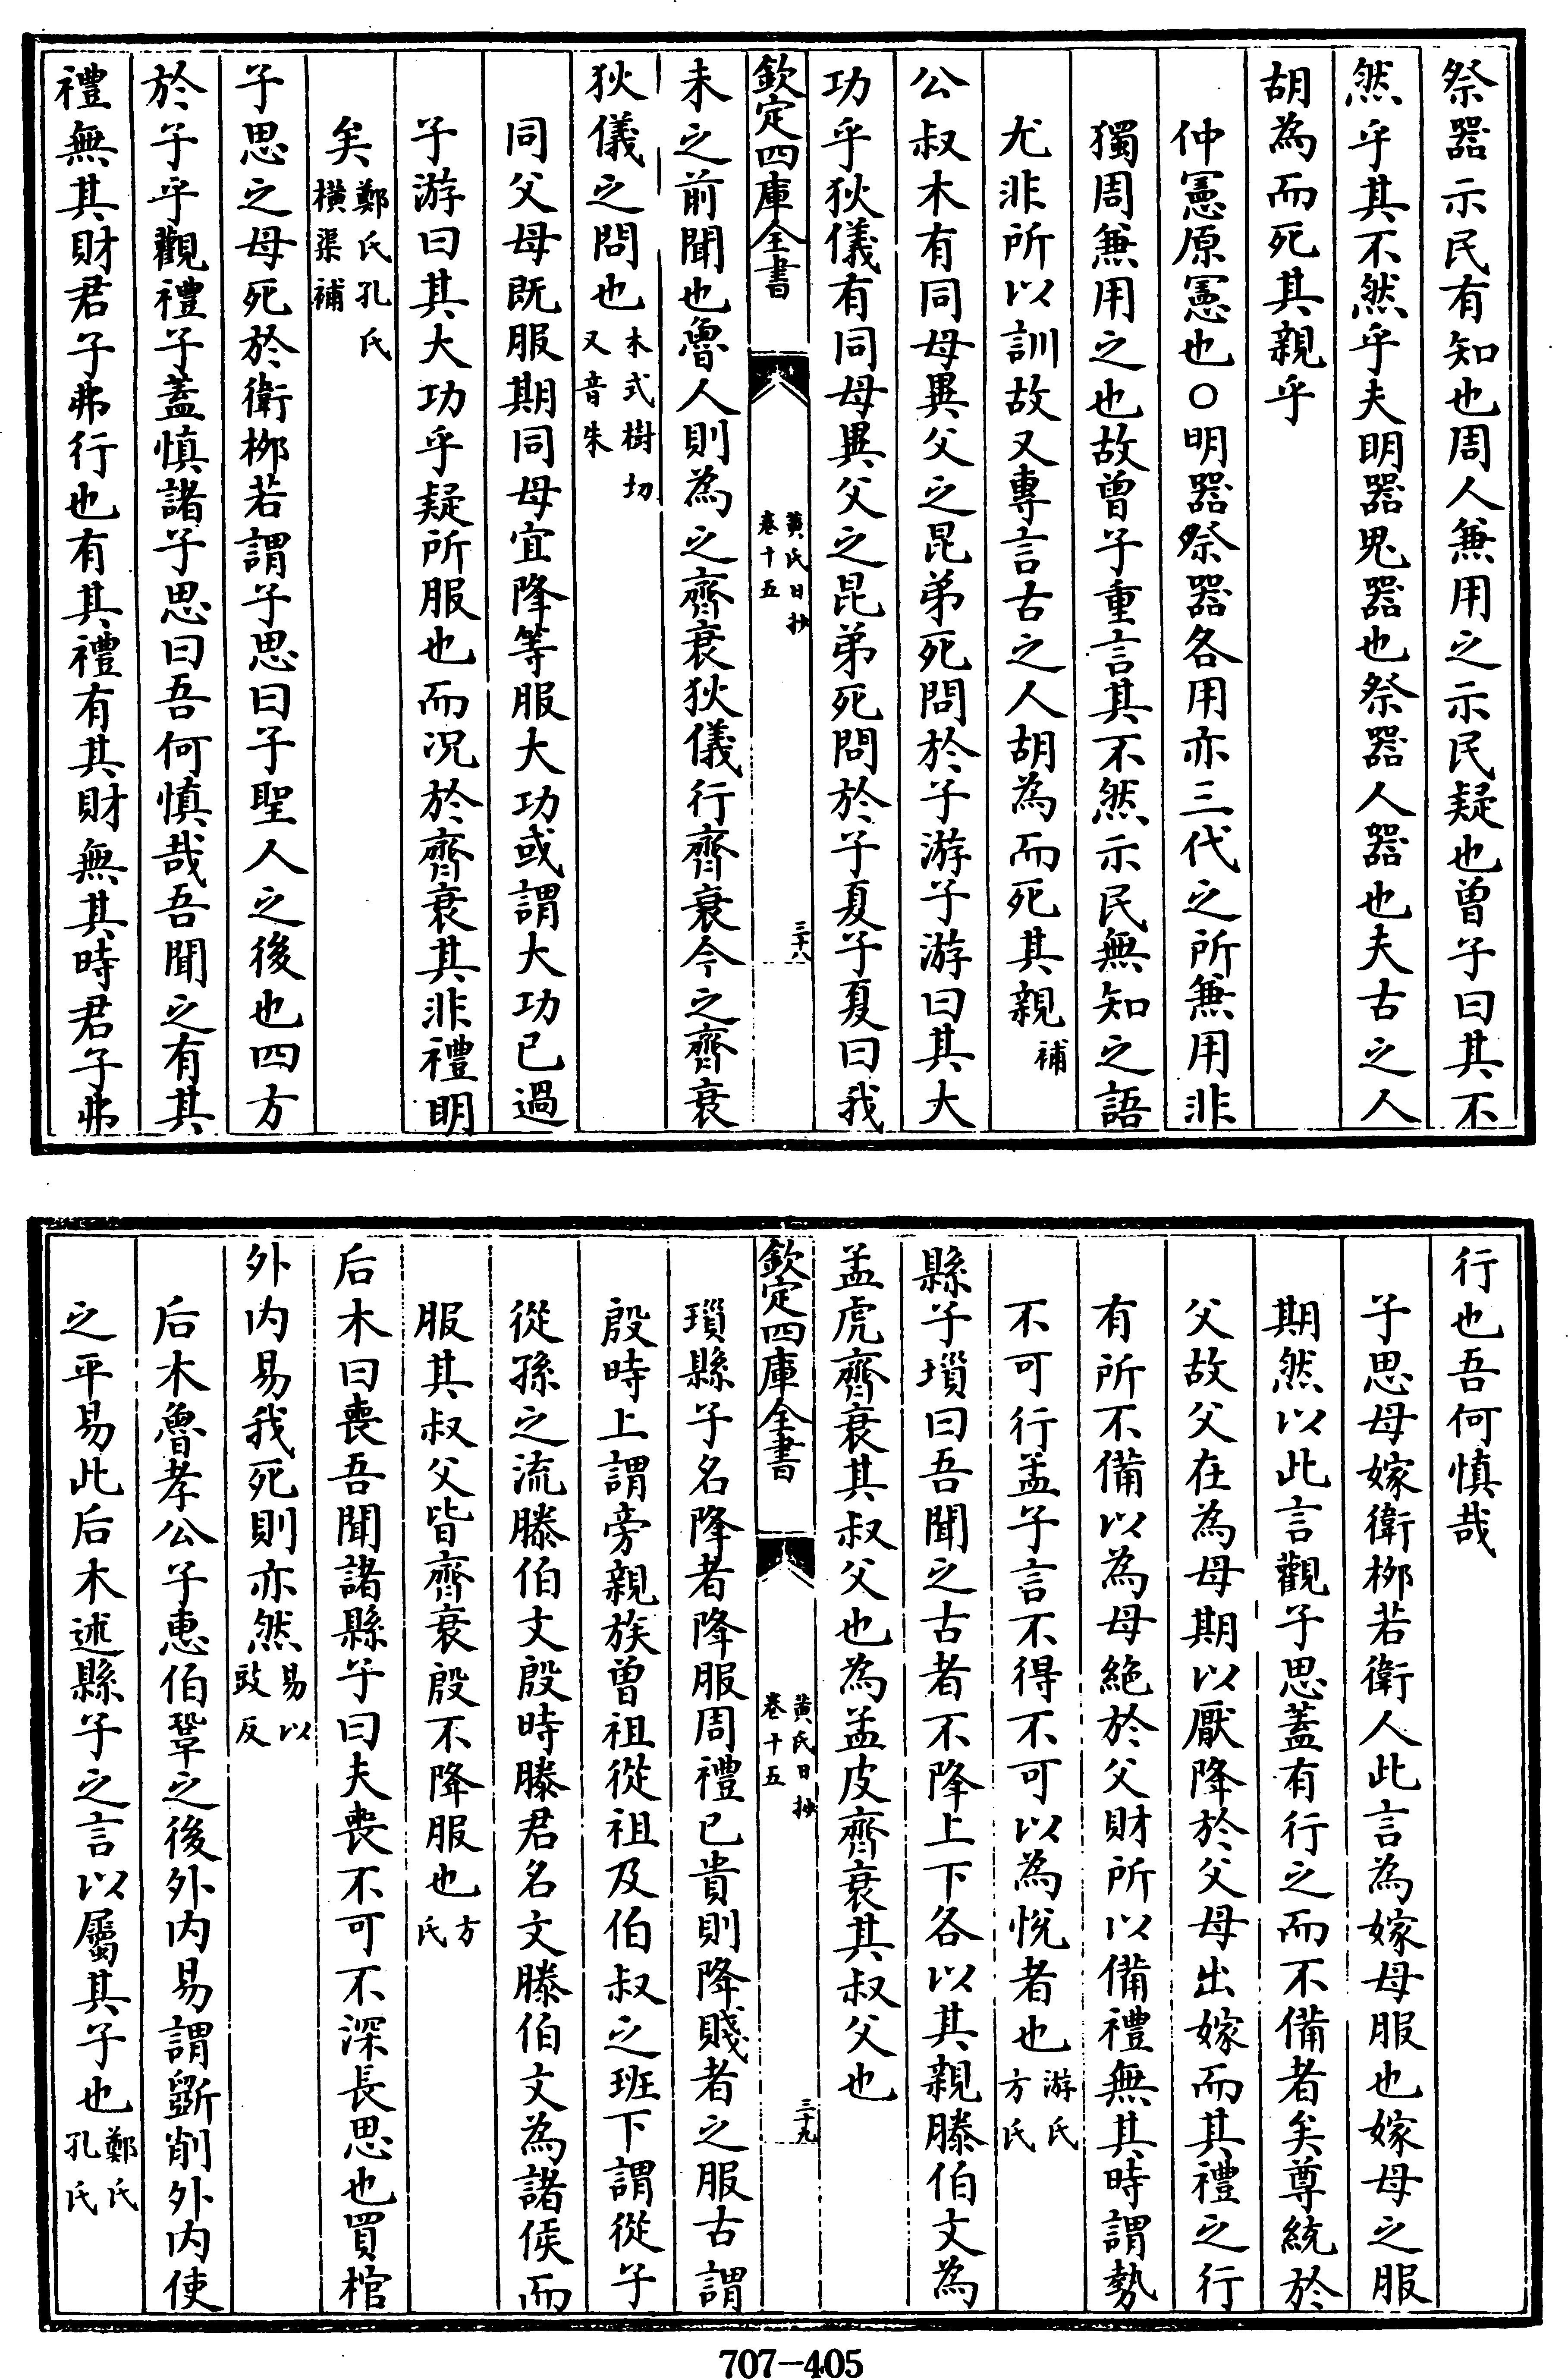 祭器示民有知也周人兼用之示民疑也曾子曰其不
然乎其不然乎夫明器鬼器也祭器人器也夫古之人
胡為而死其親乎
仲憲原憲也○明器祭器各用亦三代之所兼用非
獨周兼用之也故曾子重言其不然示民無知之語
尤非所以訓故又專言古之人胡為而死其親補
公叔木有同母異父之昆弟死問於子游子游曰其大
功乎狄儀有同母異父之昆弟死問於子夏子夏曰我
欽定四庫全書
黃氏日抄
卷十五
三十八
未之前聞也魯人則為之齊衰狄儀行齊衰今之齊衰
狄儀之問也木式樹切又音朱
同父母既服期同母宜降等服大功或謂大功已過
子游曰其大功乎疑所服也而况於齊衰其非禮明
矣鄭氏孔氏橫渠補
子思之母死於衛栁若謂子思曰子聖人之後也四方
於子乎觀禮子蓋慎諸子思曰吾何慎哉吾聞之有其
禮無其財君子弗行也有其禮有其財無其時君子弗
行也吾何慎哉
子思母嫁衛栁若衛人此言為嫁母服也嫁母之服
期然以此言觀子思蓋有行之而不備者矣尊統於
父故父在為母期以厭降於父母出嫁而其禮之行
有所不備以為母絶於父財所以備禮無其時謂勢
不可行孟子言不得不可以為悅者也游氏方氏
縣子瑣曰吾聞之古者不降上下各以其親滕伯文為
孟虎齊衰其叔父也為孟皮齊衰其叔父也
欽定四庫全書
黃氏日抄
卷十五
三十九
瑣縣子名降者降服周禮已貴則降賤者之服古謂
殷時上謂旁親族曾祖從祖及伯叔之班下謂從子
從孫之流滕伯文殷時滕君名文滕伯文為諸侯而
服其叔父皆齊衰殷不降服也方氏
后木曰喪吾聞諸縣子曰夫喪不可不深長思也買棺
外内易我死則亦然易以豉反
后木魯孝公子惠伯鞏之後外内易謂斲削外内使
之平易此后木述縣子之言以屬其子也鄭氏孔氏
707-405